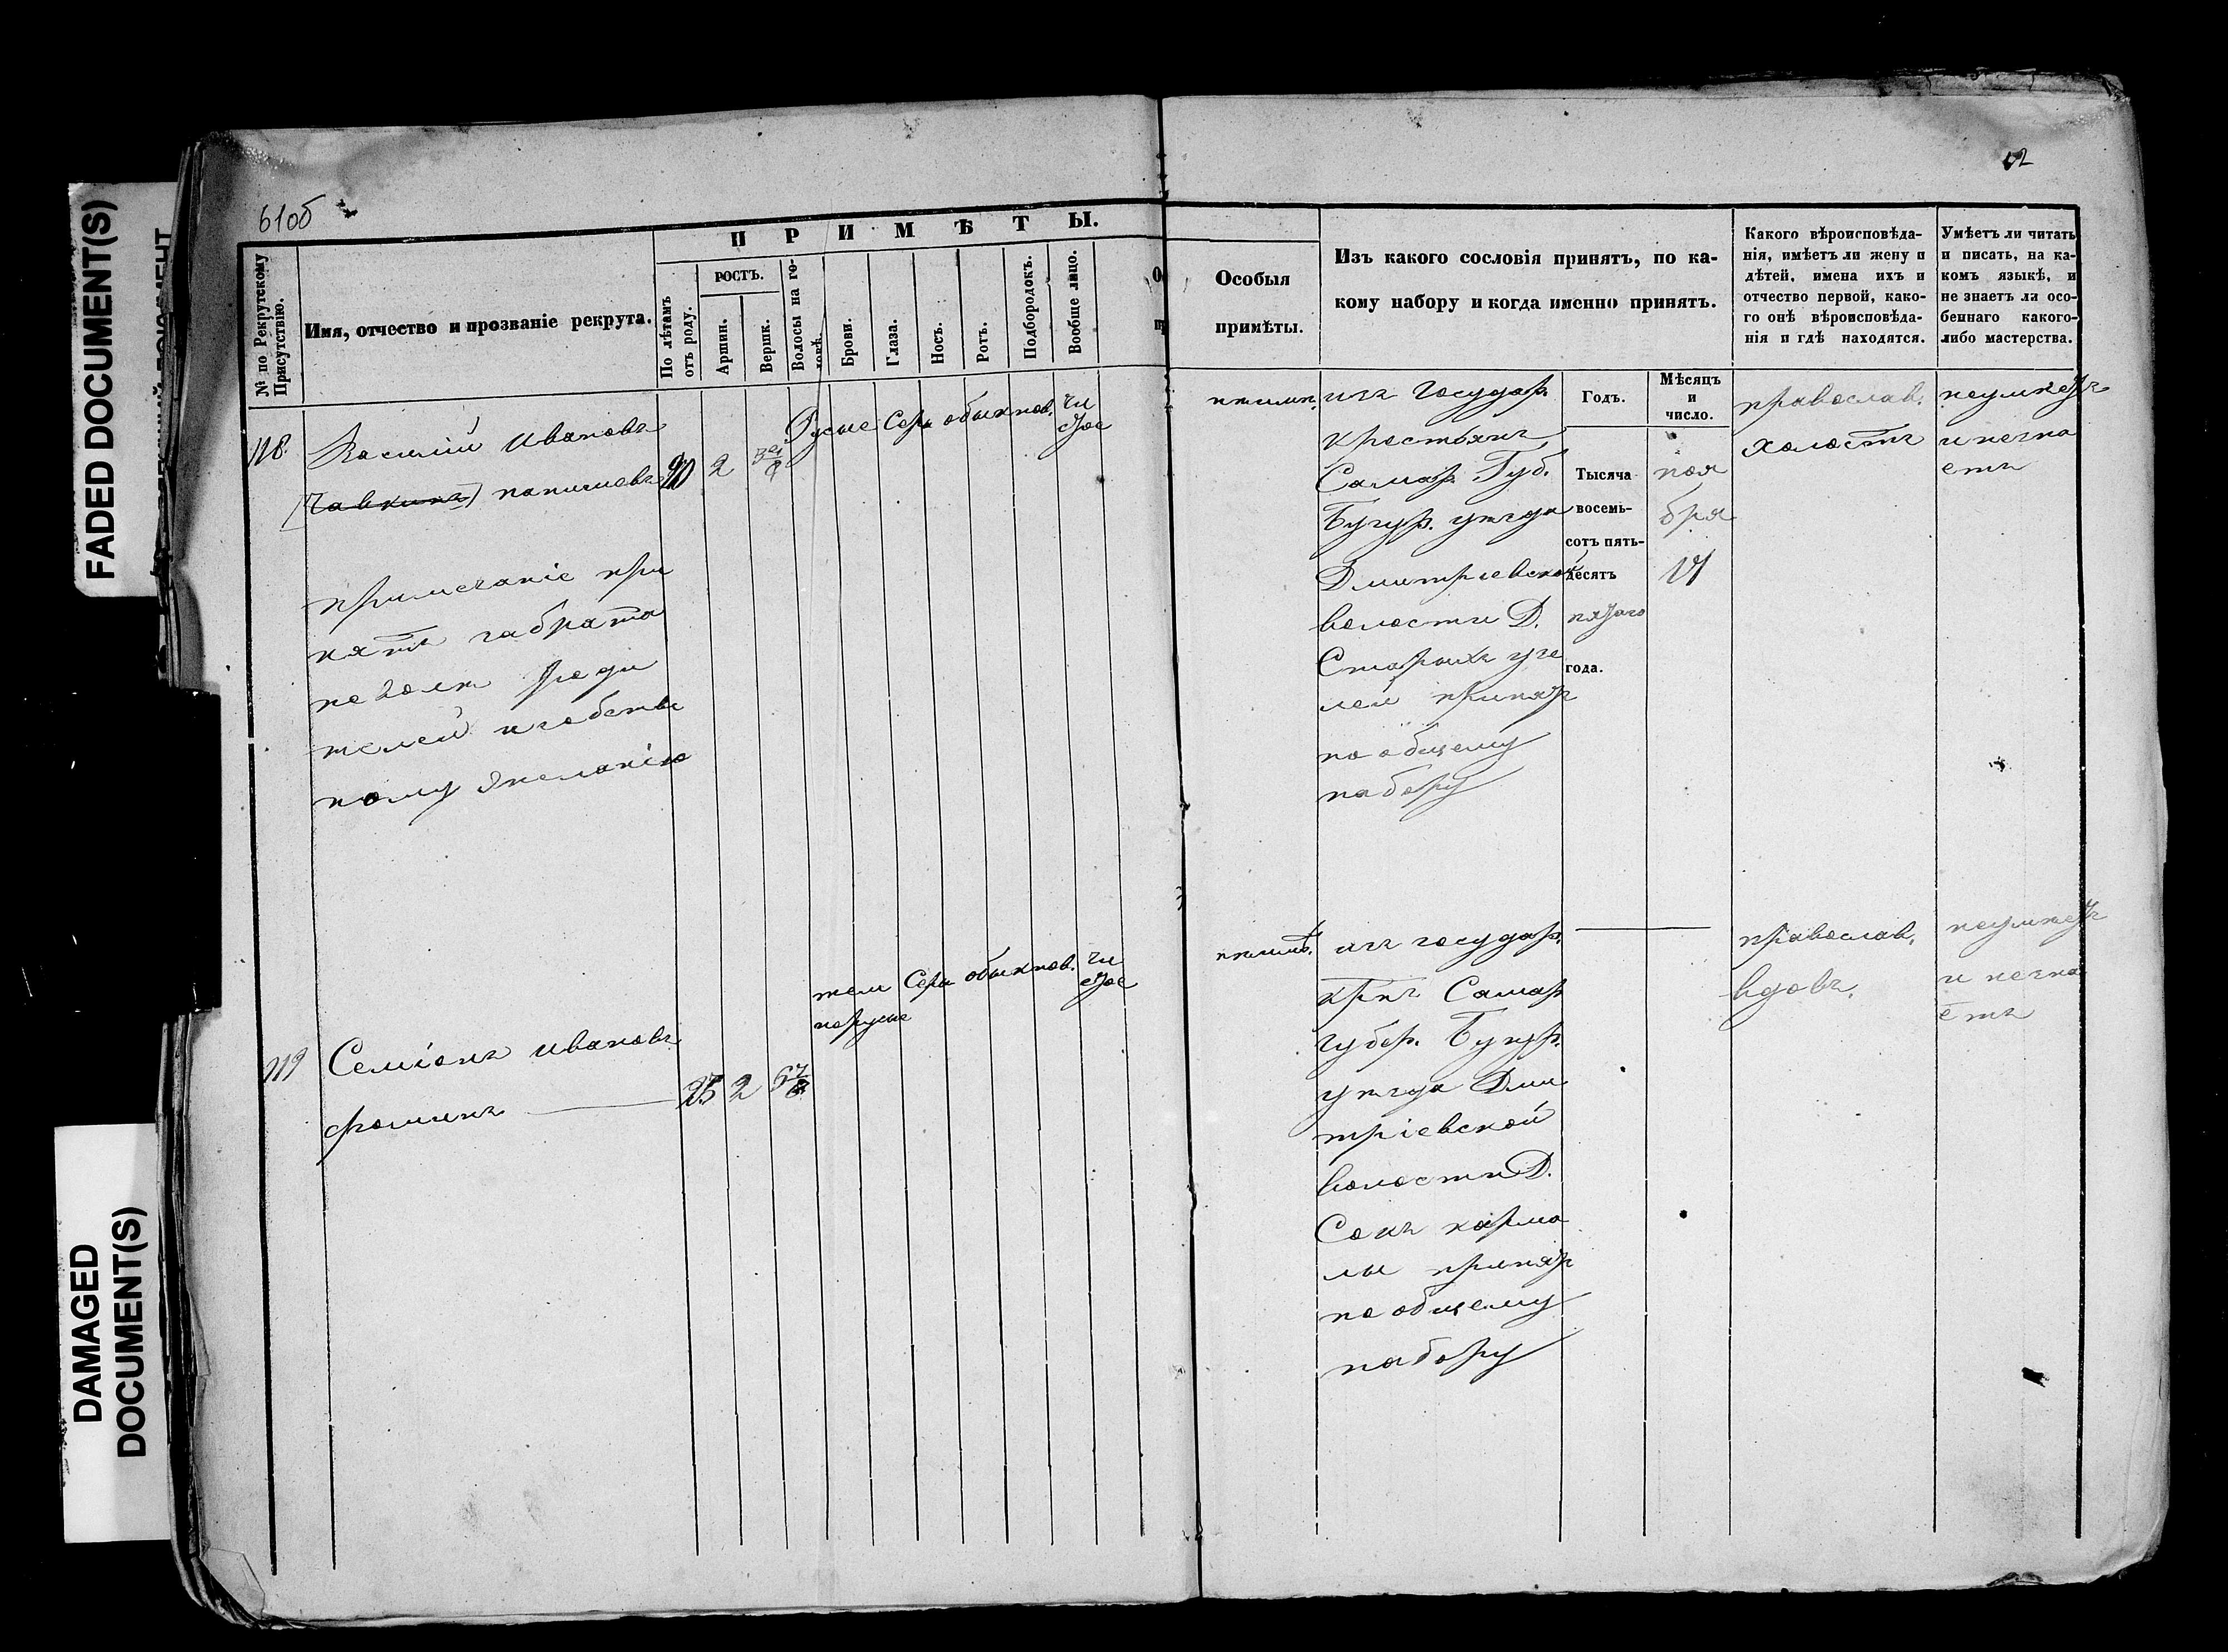 FADED DOCUMENT(S)
DAMAGED
DOCUMENT(S)
61об
62
П Р И М Ѣ Т Ы.
№ по Рекрутскому
Присутствію.
Имя, отчество и прозваніе рекрута.
По лѣтамъ
отъ роду.
РОСТЪ.
Аршин.
Вершк.
Волосы на го-
ловѣ.
Брови.
Глаза.
Носъ.
Ротъ.
Подбородокъ.
Вообще лицо.
Особыя
примѣты.
Изъ какого сословія принятъ, по ка-
кому набору и когда именно принятъ.
Годъ.
Мѣсяцъ
и
число.
Какого вѣроисповѣда-
нія, имѣетъ ли жену и
дѣтей, имена ихъ и
отчество первой, како-
го онѣ вѣроисповѣда-
нія и гдѣ находятся.
Умѣетъ ли читать
и писать, на ка-
комъ языкѣ, и
не знаетъ ли осо-
беннаго какого-
либо мастерства.
118.
Василій Ивановъ
20 2
Русые Серы обыкнов. чи
стое
примечаніе при
нятъ за брата
по воле роди
телей и собстве
ному желанію
изъ Государ.
крестьянъ
Самар. Губ.
Бугур. уезда
Дмитріевской
волости Д.
Старыхъ
принятъ
по общему
набору
Тысяча
восемь-
сотъ пять-
десятъ
пятаго
года.
ноя
бря
православ.
холостъ
неумеетъ
и незна
етъ
119
Семіонъ Ивановъ
Фоминъ
25 2 6 7/8
темн
норусые
Серы обыкнов. чи
стое
изъ государ.
крнъ Самар
губер. Бугур.
уезда Дми
тріевской
волости Д.
Сокъ карма
лы принятъ
по общему
набору
православ.
вдовъ.
неумеетъ
и незна
етъ